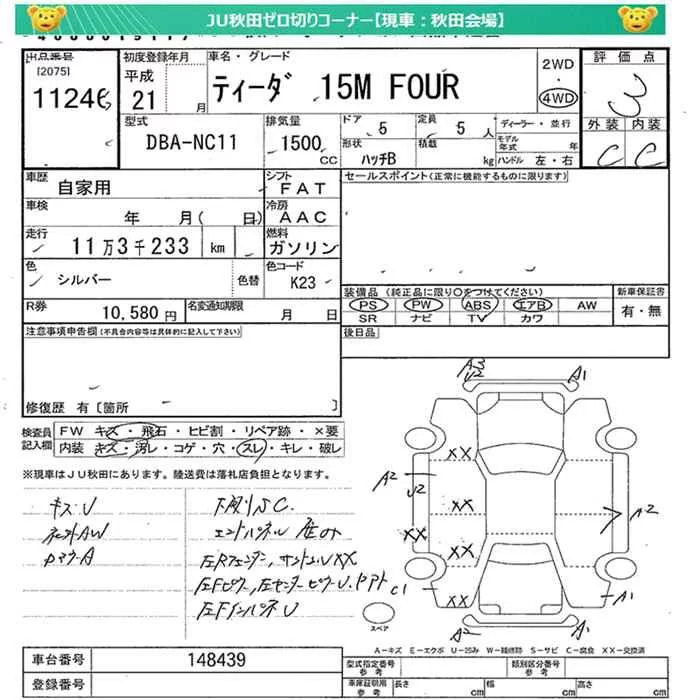 JU秋田ゼロ切りコーナー【現車：秋田会場】
出品番号
[2075]
11246
初度登録年月
平成
21 月
車名・グレード
ティーダ 15M FOUR
2WD
・
4WD
評価点
3
外装 内装
C C
型式
DBA-NC11
排気量
1500 CC
ドア 5
定員 5 人
形状 ハッチB
積載 kg
ディーラー・並行
モデル年式 年
ハンドル 左・右
車歴
自家用
シフト
FAT
セールスポイント(正常に機能するものに限ります)
車検
年 月( 日)
冷房
AAC
走行
11万3千233 km
燃料
ガソリン
色
シルバー
色替
色コード
K23
装備品(純正品に限り○をつけてください)
新車保証書
PS PW ABS エアB AW
有・無
SR ナビ TV カワ
R券
10,580円
名変通知期限
月 日
注意事項申告欄(不具合内容等は具体的に記入して下さい)
後日品
修復歴 有〔箇所 〕
検査員記入欄
FW キズ・飛石・ヒビ割・リペア跡・×要
内装 キズ・汚レ・コゲ・穴・スレ・キレ・破レ
※現車はJU秋田にあります。陸送費は落札店負担となります。
キズU
下廻りSC
A3
U2
A1
XX
A2
U2
XX
XX
XX
A2
C1
XX
A1
スペア
A2
A1
A－キズ E－エクボ U－凹み W－補修跡 S－サビ C－腐食 XX－交換済
車台番号
148439
登録番号
型式指定番号
参考
類別区分番号
参考
車庫証明用
参考
長さ cm
幅 cm
高さ cm